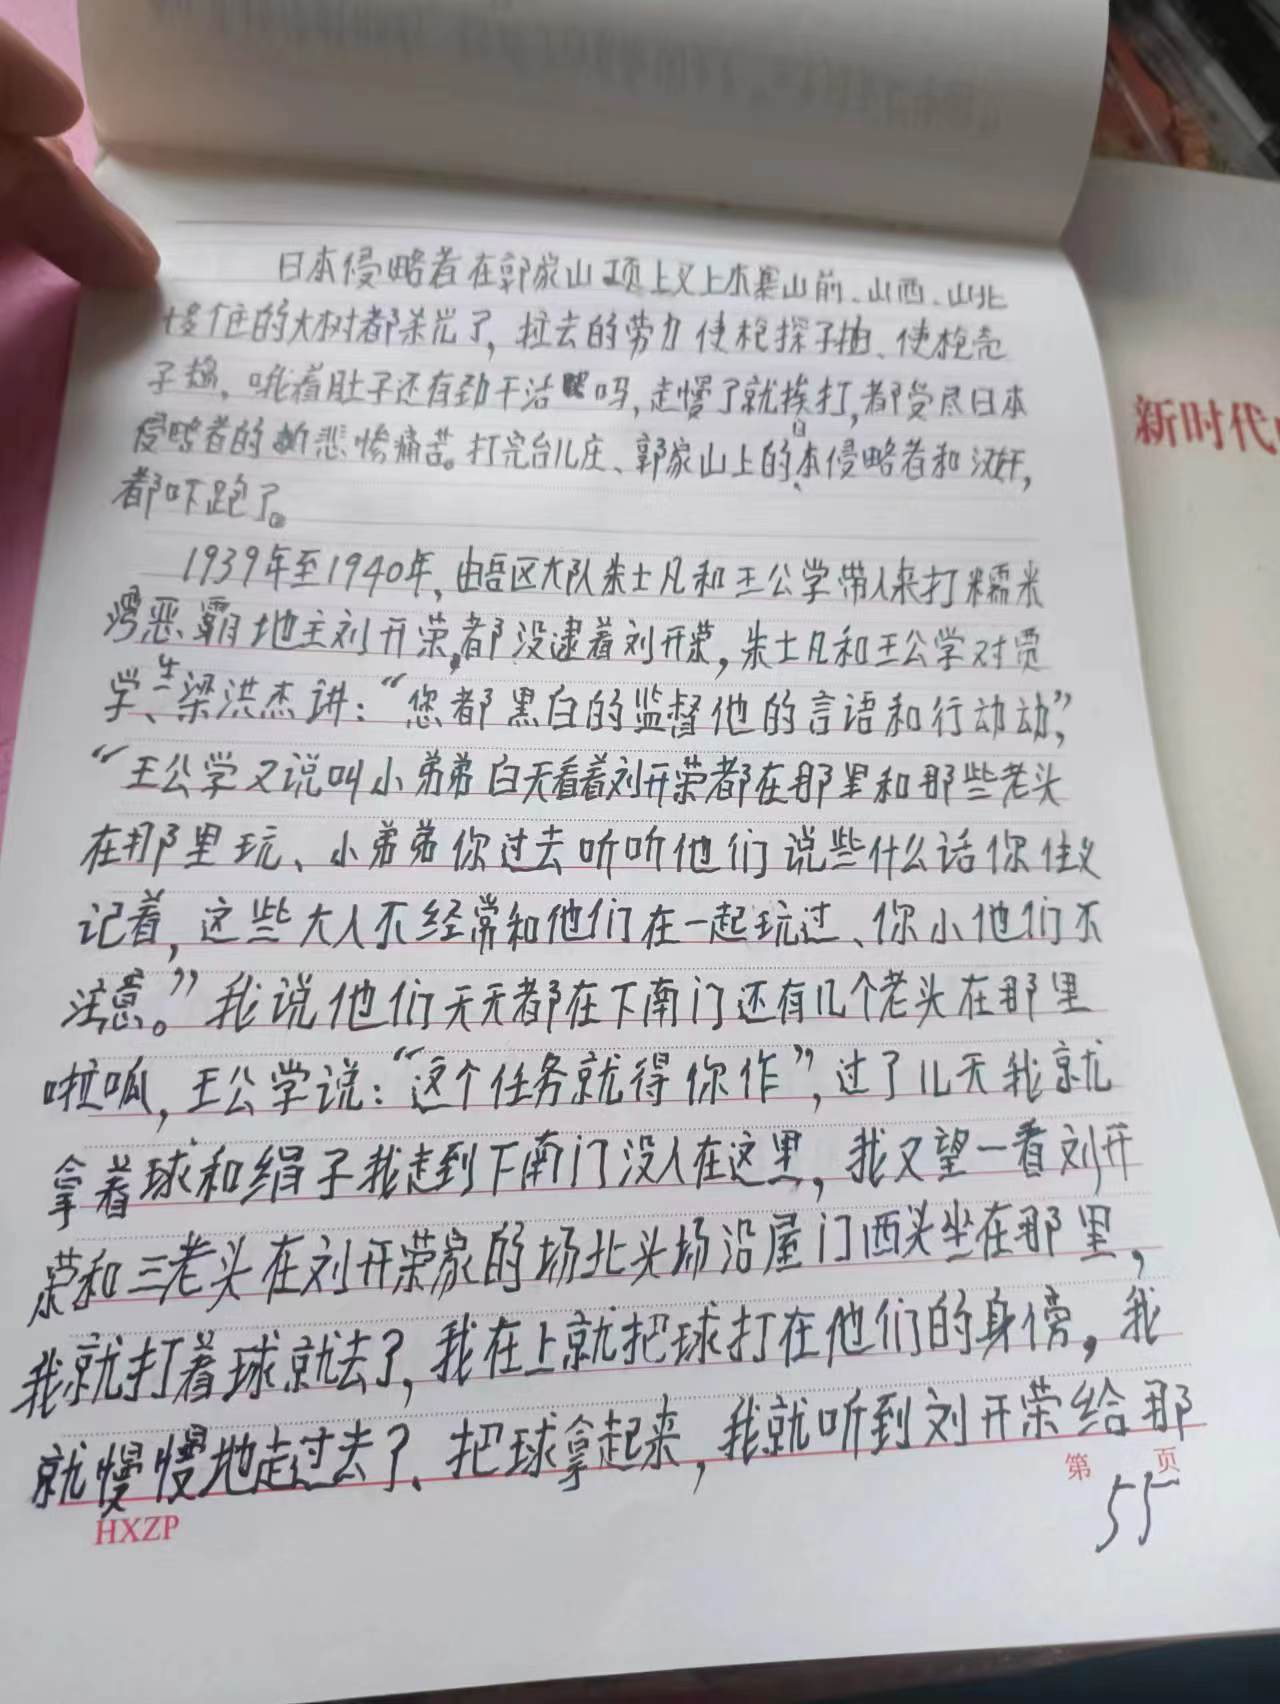 日本侵略者在郭家山顶上又上木寨山前、山西、山北
庄的大树都杀光了，拉去的劳力使枪探子抽、使枪壳
子捣，哦着肚子还有劲干活吗，走慢了就挨打，都受尽日本
侵略者的悲惨痛苦。打完台儿庄、郭家山上的日本侵略者和汉奸，
都吓跑了。
1939年至1940年，由吾区大队朱士凡和王公学带人来打糯米
湾恶霸地主刘开荣，都没逮着刘开荣，朱士凡和王公学对贾
学生、梁洪杰讲：“您都黑白的监督他的言语和行动动”，
“王公学又说叫小弟弟白天看着刘开荣都在那里和那些老头
在那里玩、小弟弟你过去听听他们说些什么话你住义
记着，这些大人不经常和他们在一起玩过、你小他们不
注意。”我说他们天天都在下南门还有几个老头在那里
啦呱，王公学说：“这个任务就得你作”，过了几天我就
拿着球和绢子我走到下南门没人在这里，我又望一看刘开
荣和三老头在刘开荣家的场北头场沿屋门西头坐在那里，
我就打着球就去了，我在上就把球打在他们的身傍，我
就慢慢地走过去了、把球拿起来，我就听到刘开荣给那
第 页
55
HXZP
新时代